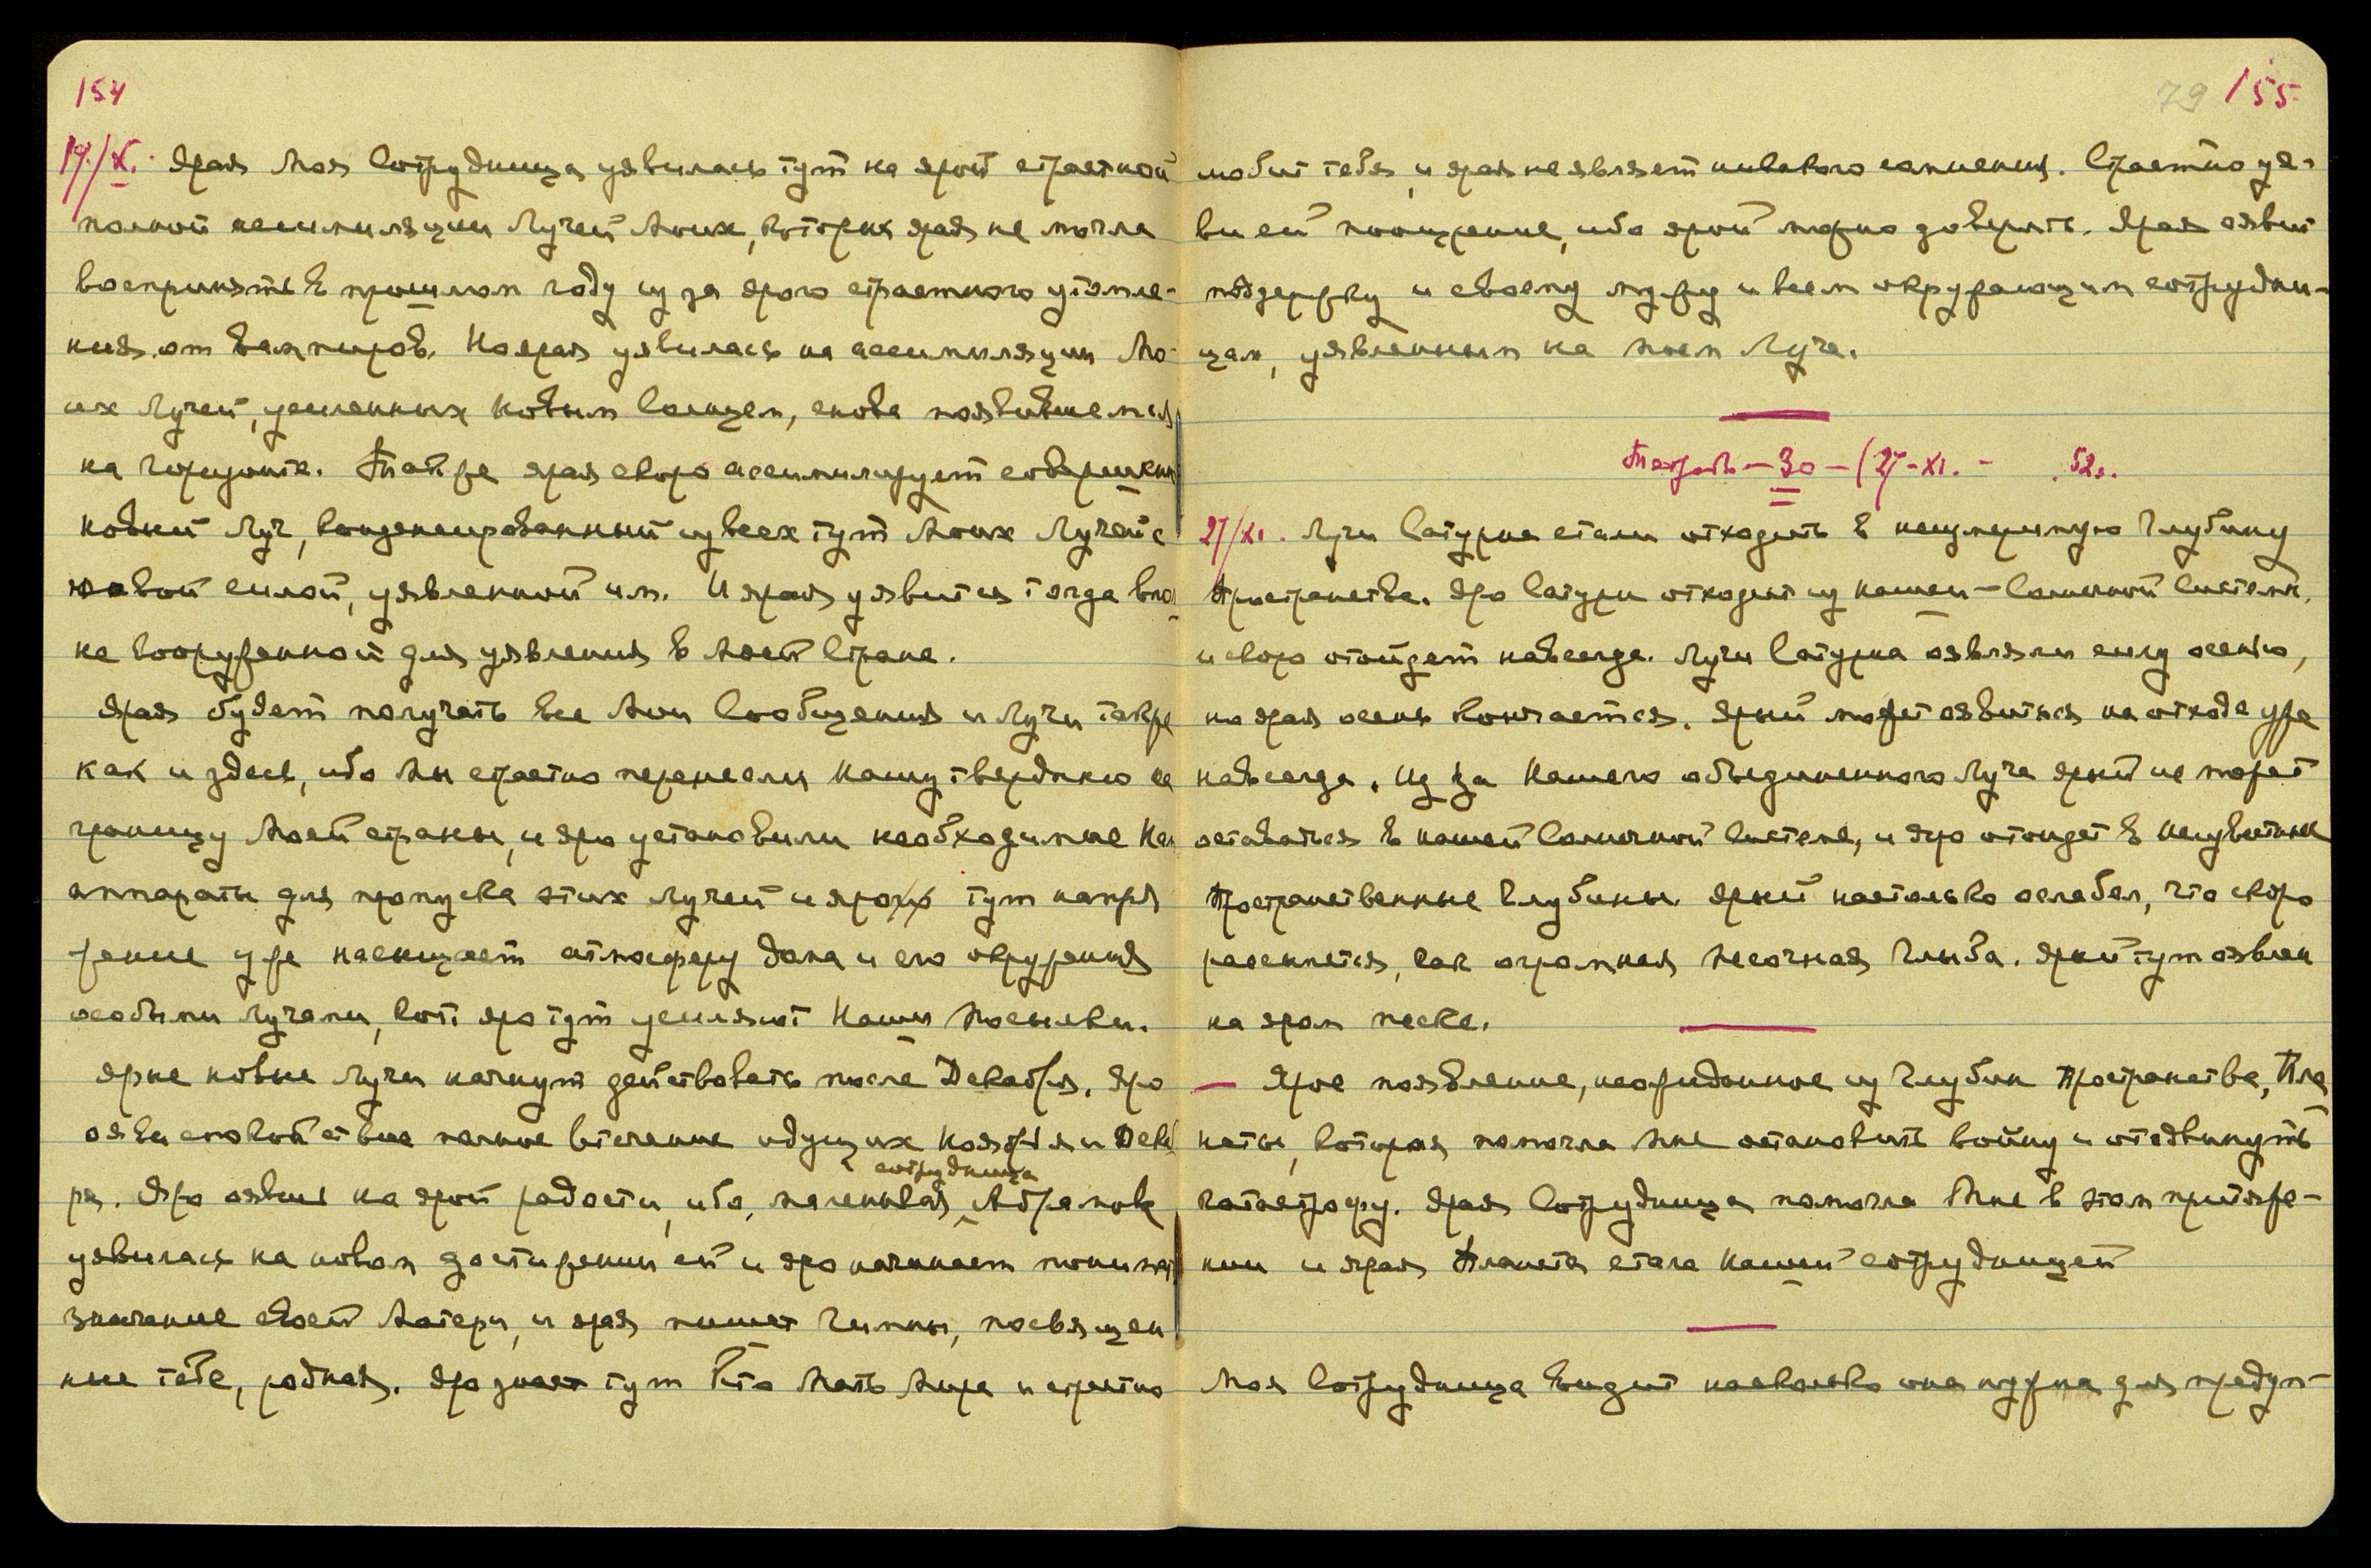 154
19/X. Ярая Моя Сотрудница уявилась тут на ярой страстной
полной ассимиляции Лучей Моих, которых ярая не могла
воспринять в прошлом году из за ярого страстного утомле-
ния от вампиров. Но ярая уявилась на ассимиляции Мо-
их Лучей, усиленных Новым Солнцем, снова появившемся
на горизонте. Так же ярая скоро ассимилирует совершенно
новый Луч, конденсированный из всех тут Моих Лучей с
новой силой, уявленной им. И ярая уявится тогда впол-
не вооруженной для уявления в Моей Стране.
Ярая будет получать все Мои Сообщения и Лучи также
как и здесь, ибо Мы страстно перенесли Нашу твердыню на
границу Моей страны, и яро установили необходимые Нам
аппараты для пропуска этих Лучей и яро тут напря
жение уже насыщает атмосферу дома и его окружения
особыми Лучами, кот. яро тут усиляют Наши Посылки.
Ярые новые Лучи начнут действовать после Декабря. Яро
ояви спокойствие полное втечение идущих Ноября и Декаб
ря. Яро оявись на ярой радости, ибо, маленькая
сотрудница
Абрамов
уявилась на новом достижении ей и яро начинает понимать
значение своей Матери, и ярая пишет гимны, посвящен
ные тебе, родная. Яро знает тут Кто Мать Мира и страстно
79 155
любит тебя, и ярая не являет никакого сомнения. Страстно уя-
ви ей поощрение, ибо ярой можно доверять. Ярая оявит
поддержку и своему мужу и всем окружающим сотрудни-
цам, уявленным на Моем Луче.
Тетрадь – 30 – (27-XI. – .52г.
27/XI. Лучи Сатурна стали отходить в неизмеримую Глубину
Пространства. Яро Сатурн отходит из нашей – Солнечной Системы,
и скоро отойдет навсегда. Лучи Сатурна оявляли силу осенью,
но ярая осень кончается. Ярый может оявиться на отходе уже
навсегда. Из за Нашего объединенного Луча ярый не может
оставаться в нашей Солнечной Системе, и яро отойдет в неизвестные
Пространственные Глубины. Ярый настолько ослабел, что скоро
рассыпется, как огромная песочная Глыба. Ярый тут оявлен
на яром песке.
– Ярое появление, неожиданное из Глубин Пространства, Пла
неты, которая помогла Мне остановить войну и отодвинуть
катастрофу. Ярая Сотрудница помогла Мне в этом притяже-
нии и ярая Планета стала Нашей сотрудницей
Моя Сотрудница видит насколько она нужна для предуп-